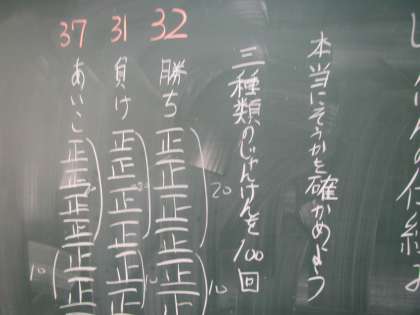 本当にそうかを確かめよう
三種類のじゃんけんを100回
32 勝ち 正正正正正正 20 10
31 負け 正正正正正正 20 10
37 あいこ 正正正正正正正 20 10